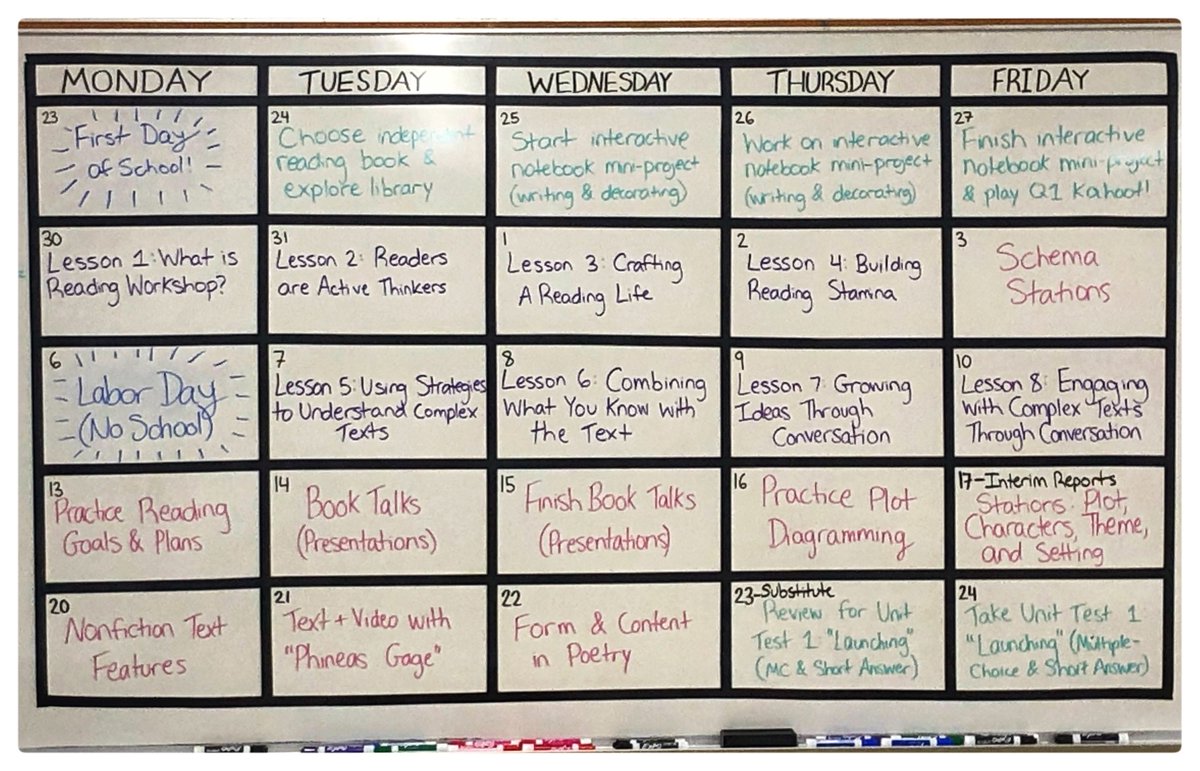 MONDAY
TUESDAY
WEDNESDAY
THURSDAY
FRIDAY
23
First Day
of School!
24
Choose independent
reading book &
explore library
25
Start interactive
notebook mini-project
(writing & decorating)
26
Work on interactive
notebook mini-project
(writing & decorating)
27
Finish interactive
notebook mini-project
& play Q1 Kahoot!
30
Lesson 1: What is
Reading Workshop?
31
Lesson 2: Readers
are Active Thinkers
1
Lesson 3: Crafting
A Reading Life
2
Lesson 4: Building
Reading Stamina
3
Schema
Stations
6
Labor Day
(No School)
7
Lesson 5: Using Strategies
to Understand Complex
Texts
8
Lesson 6: Combining
What You Know with
the Text
9
Lesson 7: Growing
Ideas Through
Conversation
10
Lesson 8: Engaging
with Complex Texts
Through Conversation
13
Practice Reading
Goals & Plans
14
Book Talks
(Presentations)
15
Finish Book Talks
(Presentations)
16
Practice Plot
Diagramming
17-Interim Reports
Stations: Plot,
Characters, Theme,
and Setting
20
Nonfiction Text
Features
21
Text + Video with
"Phineas Gage"
22
Form & Content
in Poetry
23-Substitute
Review for Unit
Test 1 "Launching"
(MC & Short Answer)
24
Take Unit Test 1
"Launching" (Multiple-
Choice & Short Answer)